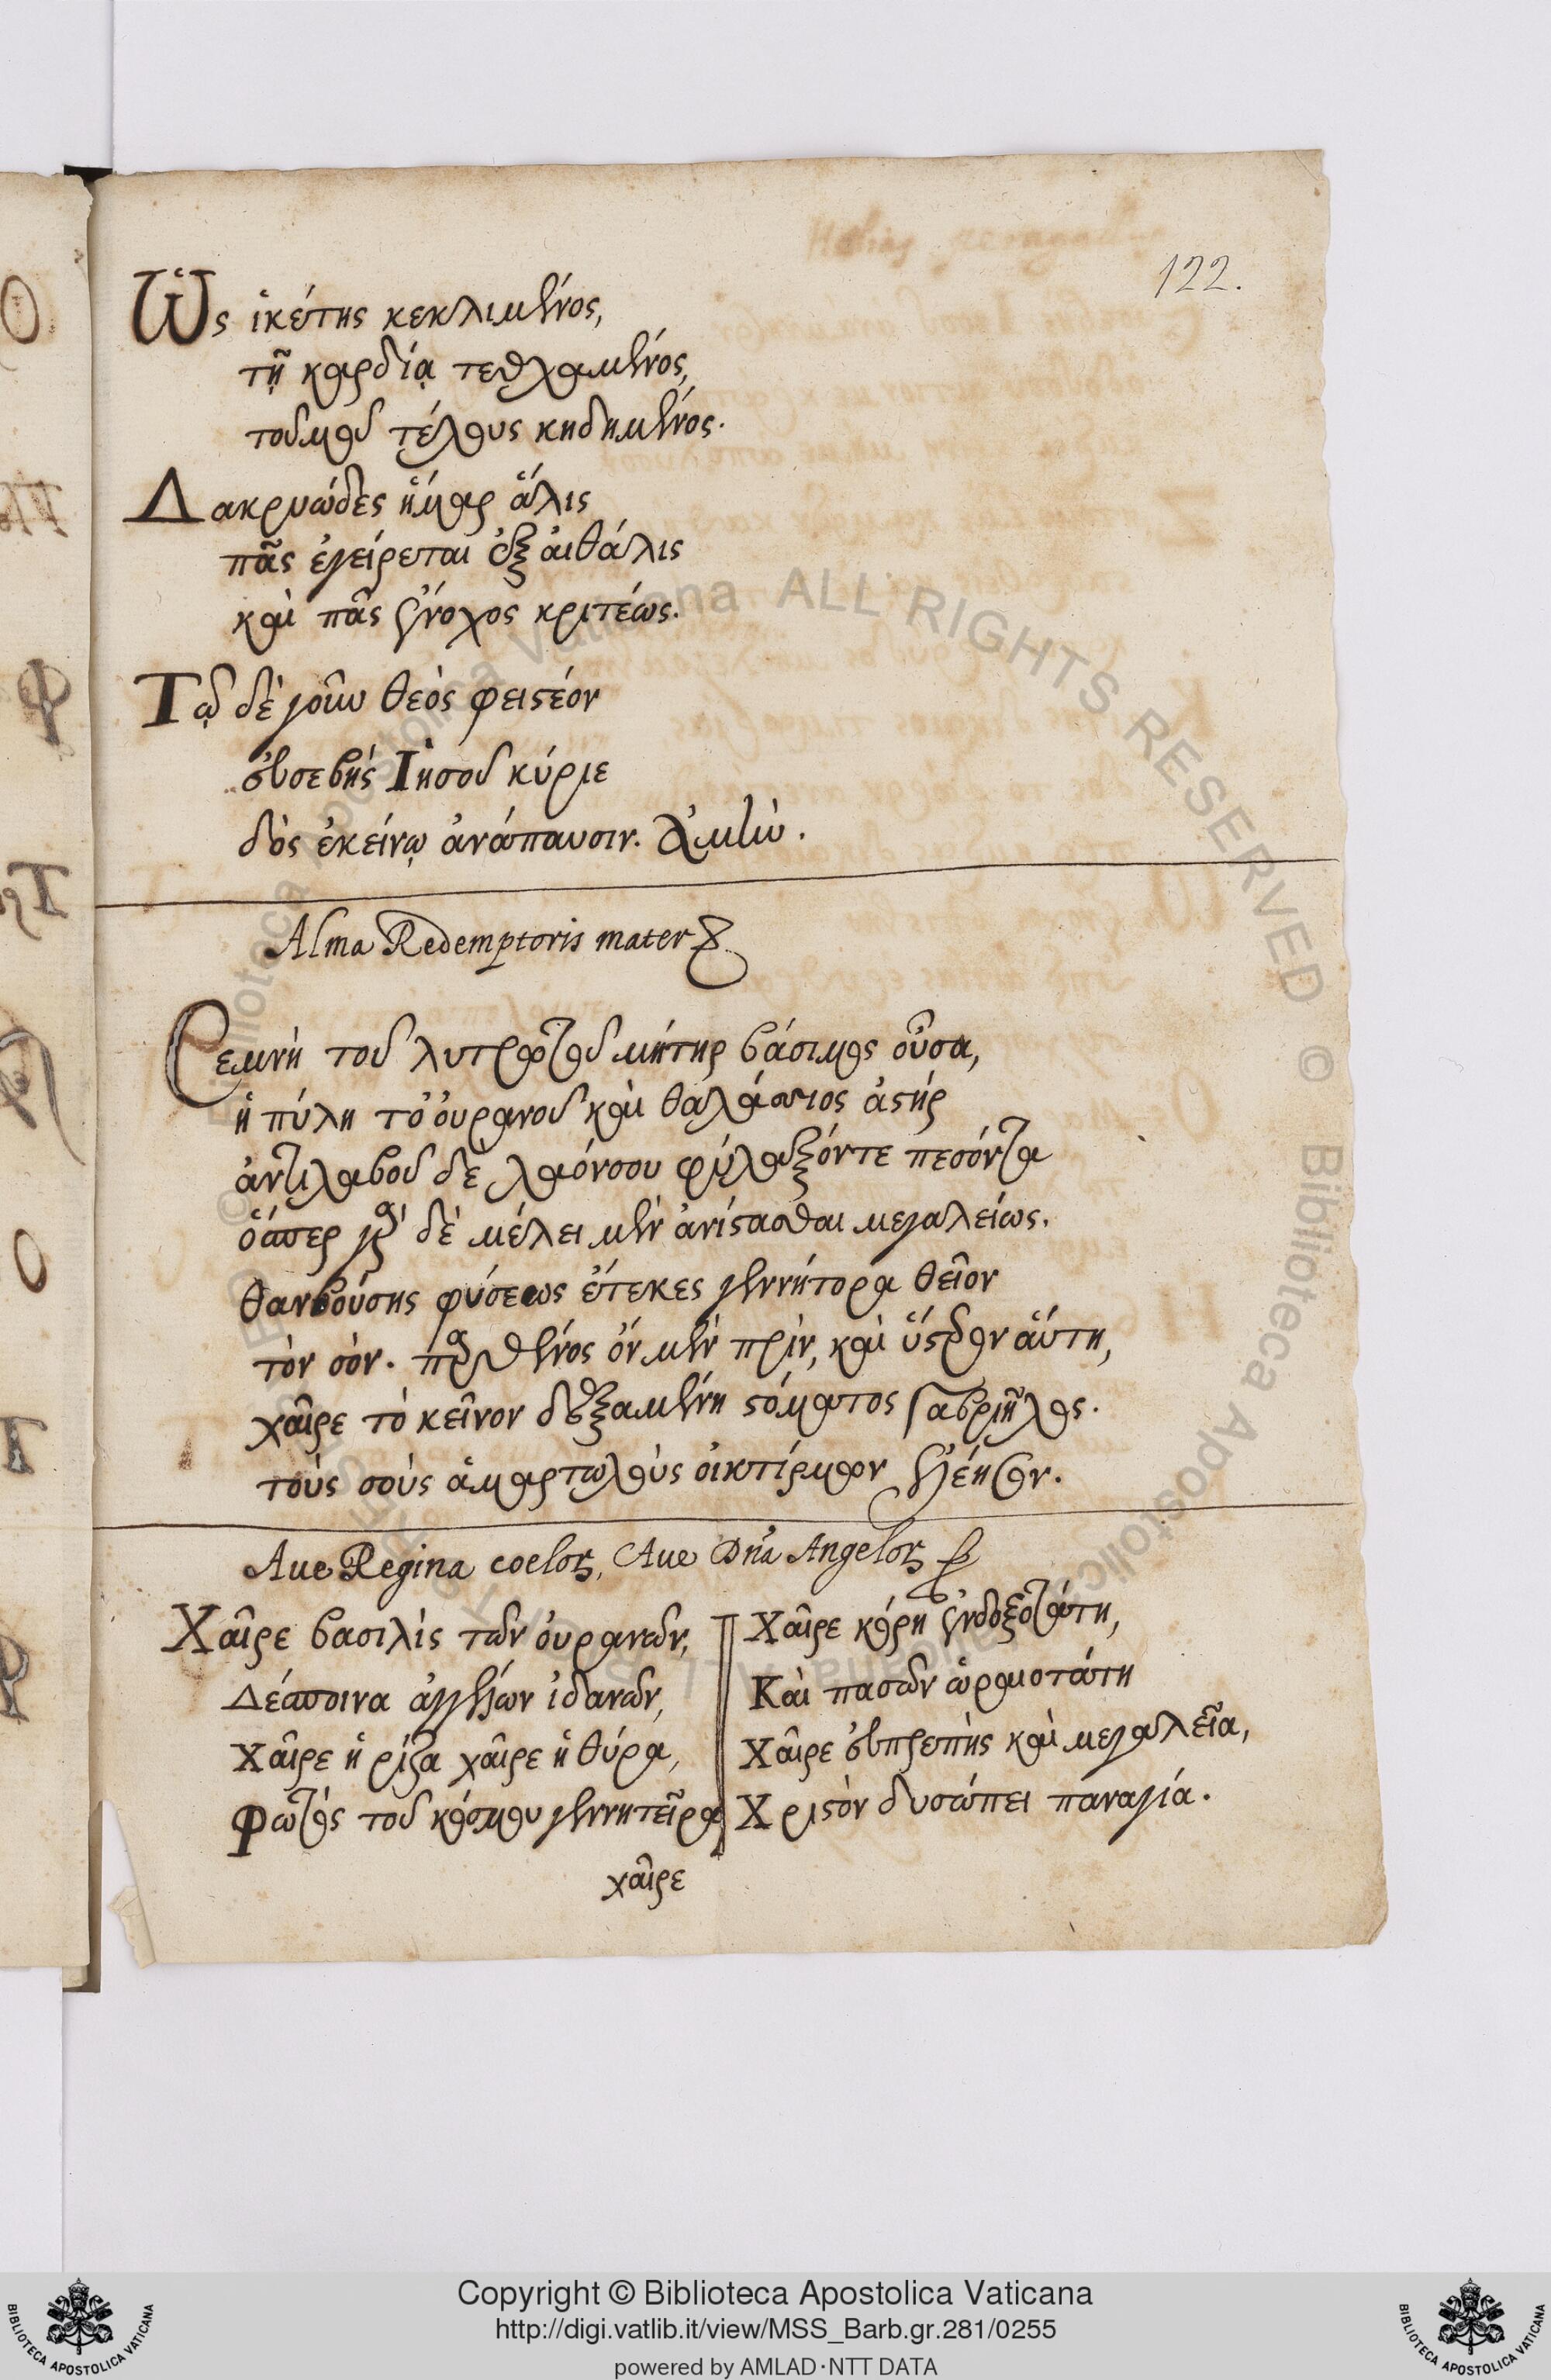 122.
Ὡς ἱκέτης κεκλιμένος,
τῇ καρδίᾳ τεθλαμένος,
τοῦμοῦ τέλους κηδημένος.
Δακρυώδες ἥμαρ ἅλις
πᾶς ἐγείρεται ἐξ αἰθάλις
καὶ πᾶς ἔνοχος κριτέως.
Τῷ δὲ γοῦν θεὸς φειστέον
εὐσεβὴς Ἰησοῦ κύριε
δὸς ἐκείνῳ ἀνάπαυσιν. Ἀμήν.
Alma Redemptoris mater
Σεμνὴ τοῦ λυτρωτοῦ μήτηρ βάσιμος οὖσα,
ἡ πύλη τὸ οὐρανοῦ καὶ θαλάσσιος ἀστήρ
ἀντιλαβοῦ δὲ λαόνσου πεσόντα
ὅσπερ δὲ μέλει μὲν ἀνίστασθαι μεγαλείως.
θανβούσης φύσεως ἔτεκες γεννήτορα θεῖον
τὸν σόν. παρθένος ὃν μὲν πρὶν, καὶ ὕστερον αὕτη,
χαῖρε τὸ κεῖνον δεξαμένη στόματος Γαβριῆλος.
τοὺς σοὺς ἁμαρτωλοὺς οἰκτίρμον ἐλέησον.
Aue Regina coelorꝝ, Aue Dña Angelorꝝ
Χαῖρε βασιλὶς τῶν οὐρανῶν,
Δέσποινα ἀγγέλων ἰδανῶν,
Χαῖρε ἡ ρίζα χαῖρε ἡ θύρα,
Φωτὸς τοῦ κόσμου γεννητεῖρα
Χαῖρε κόρη ἐνδοξοτάτη,
Καὶ πασῶν ὡραιοτάτη
Χαῖρε εὐπρεπὴς καὶ μεγαλεῖα,
Χριστὸν δυσώπει παναγία.
χαῖρε
Copyright © Biblioteca Apostolica Vaticana
http://digi.vatlib.it/view/MSS_Barb.gr.281/0255
powered by AMLAD·NTT DATA
BIBLIOTECA APOSTOLICA VATICANA
BIBLIOTECA APOSTOLICA VATICANA